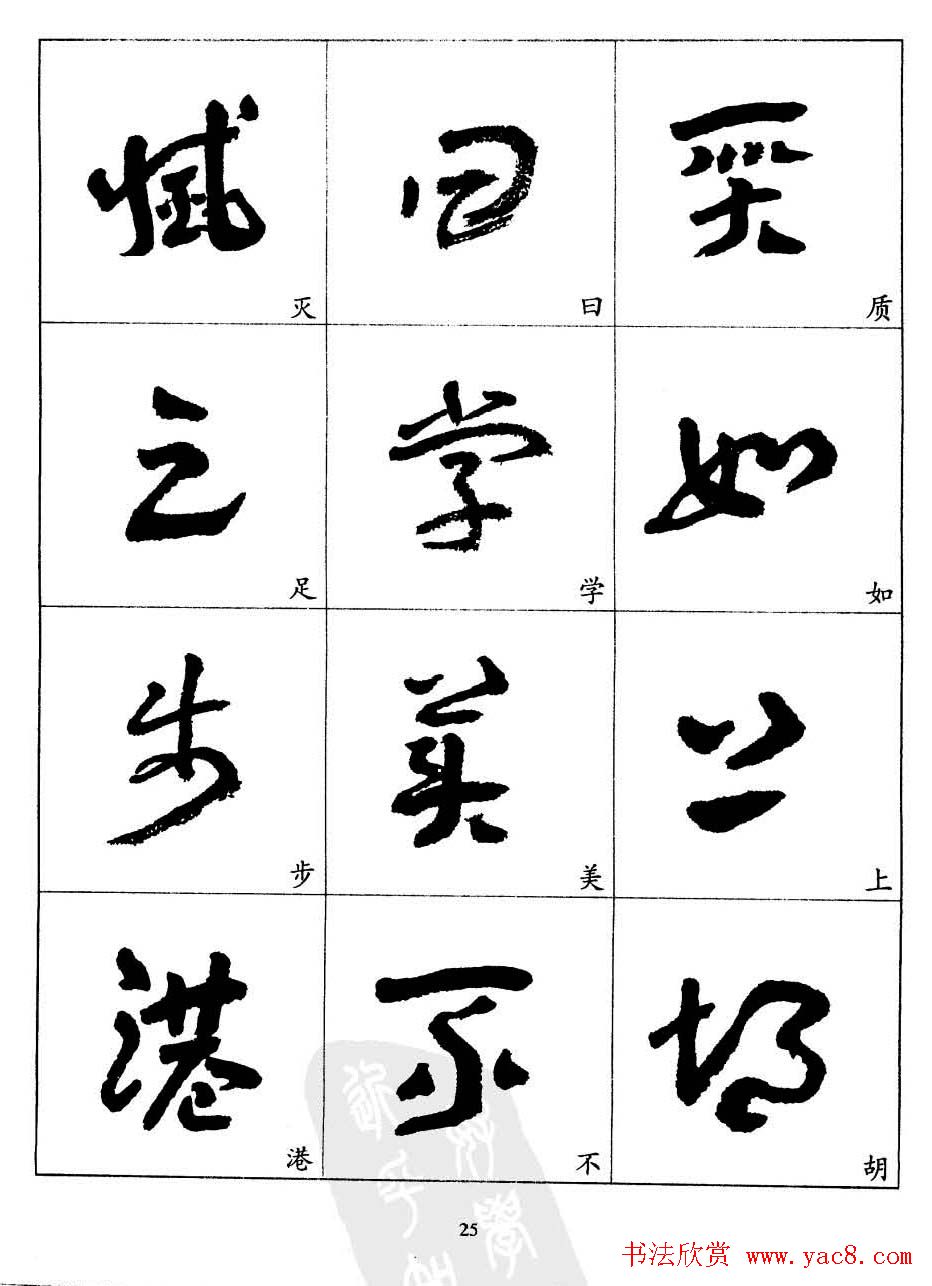 灭 曰 质
足 学 如
步 美 上
港 不 胡
25
书法欣赏 www.yac8.com